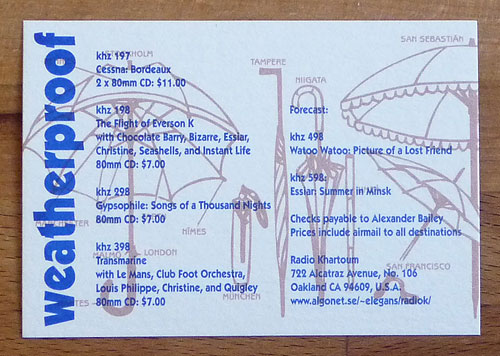 weatherproof
khz 197
Cessna: Bordeaux
2 x 80mm CD: $11.00
khz 198
The Flight of Everson K
with Chocolate Barry, Bizarre, Essiar,
Christine, Seashells, and Instant Life
80mm CD: $7.00
khz 298
Gypsophile: Songs of a Thousand Nights
80mm CD: $7.00
khz 398
Transmarine
with Le Mans, Club Foot Orchestra,
Louis Philippe, Christine, and Quigley
80mm CD: $7.00
Forecast:
khz 498
Watoo Watoo: Picture of a Lost Friend
khz 598:
Essiar: Summer in Minsk
Checks payable to Alexander Bailey
Prices include airmail to all destinations
Radio Khartoum
722 Alcatraz Avenue, No. 106
Oakland CA 94609, U.S.A.
www.algonet.se/~elegans/radiok/
STOCKHOLM
TAMPERE
NIIGATA
SAN SEBASTIÁN
MANCHESTER
NÎMES
MALMÖ
LONDON
MÜNCHEN
SAN FRANCISCO